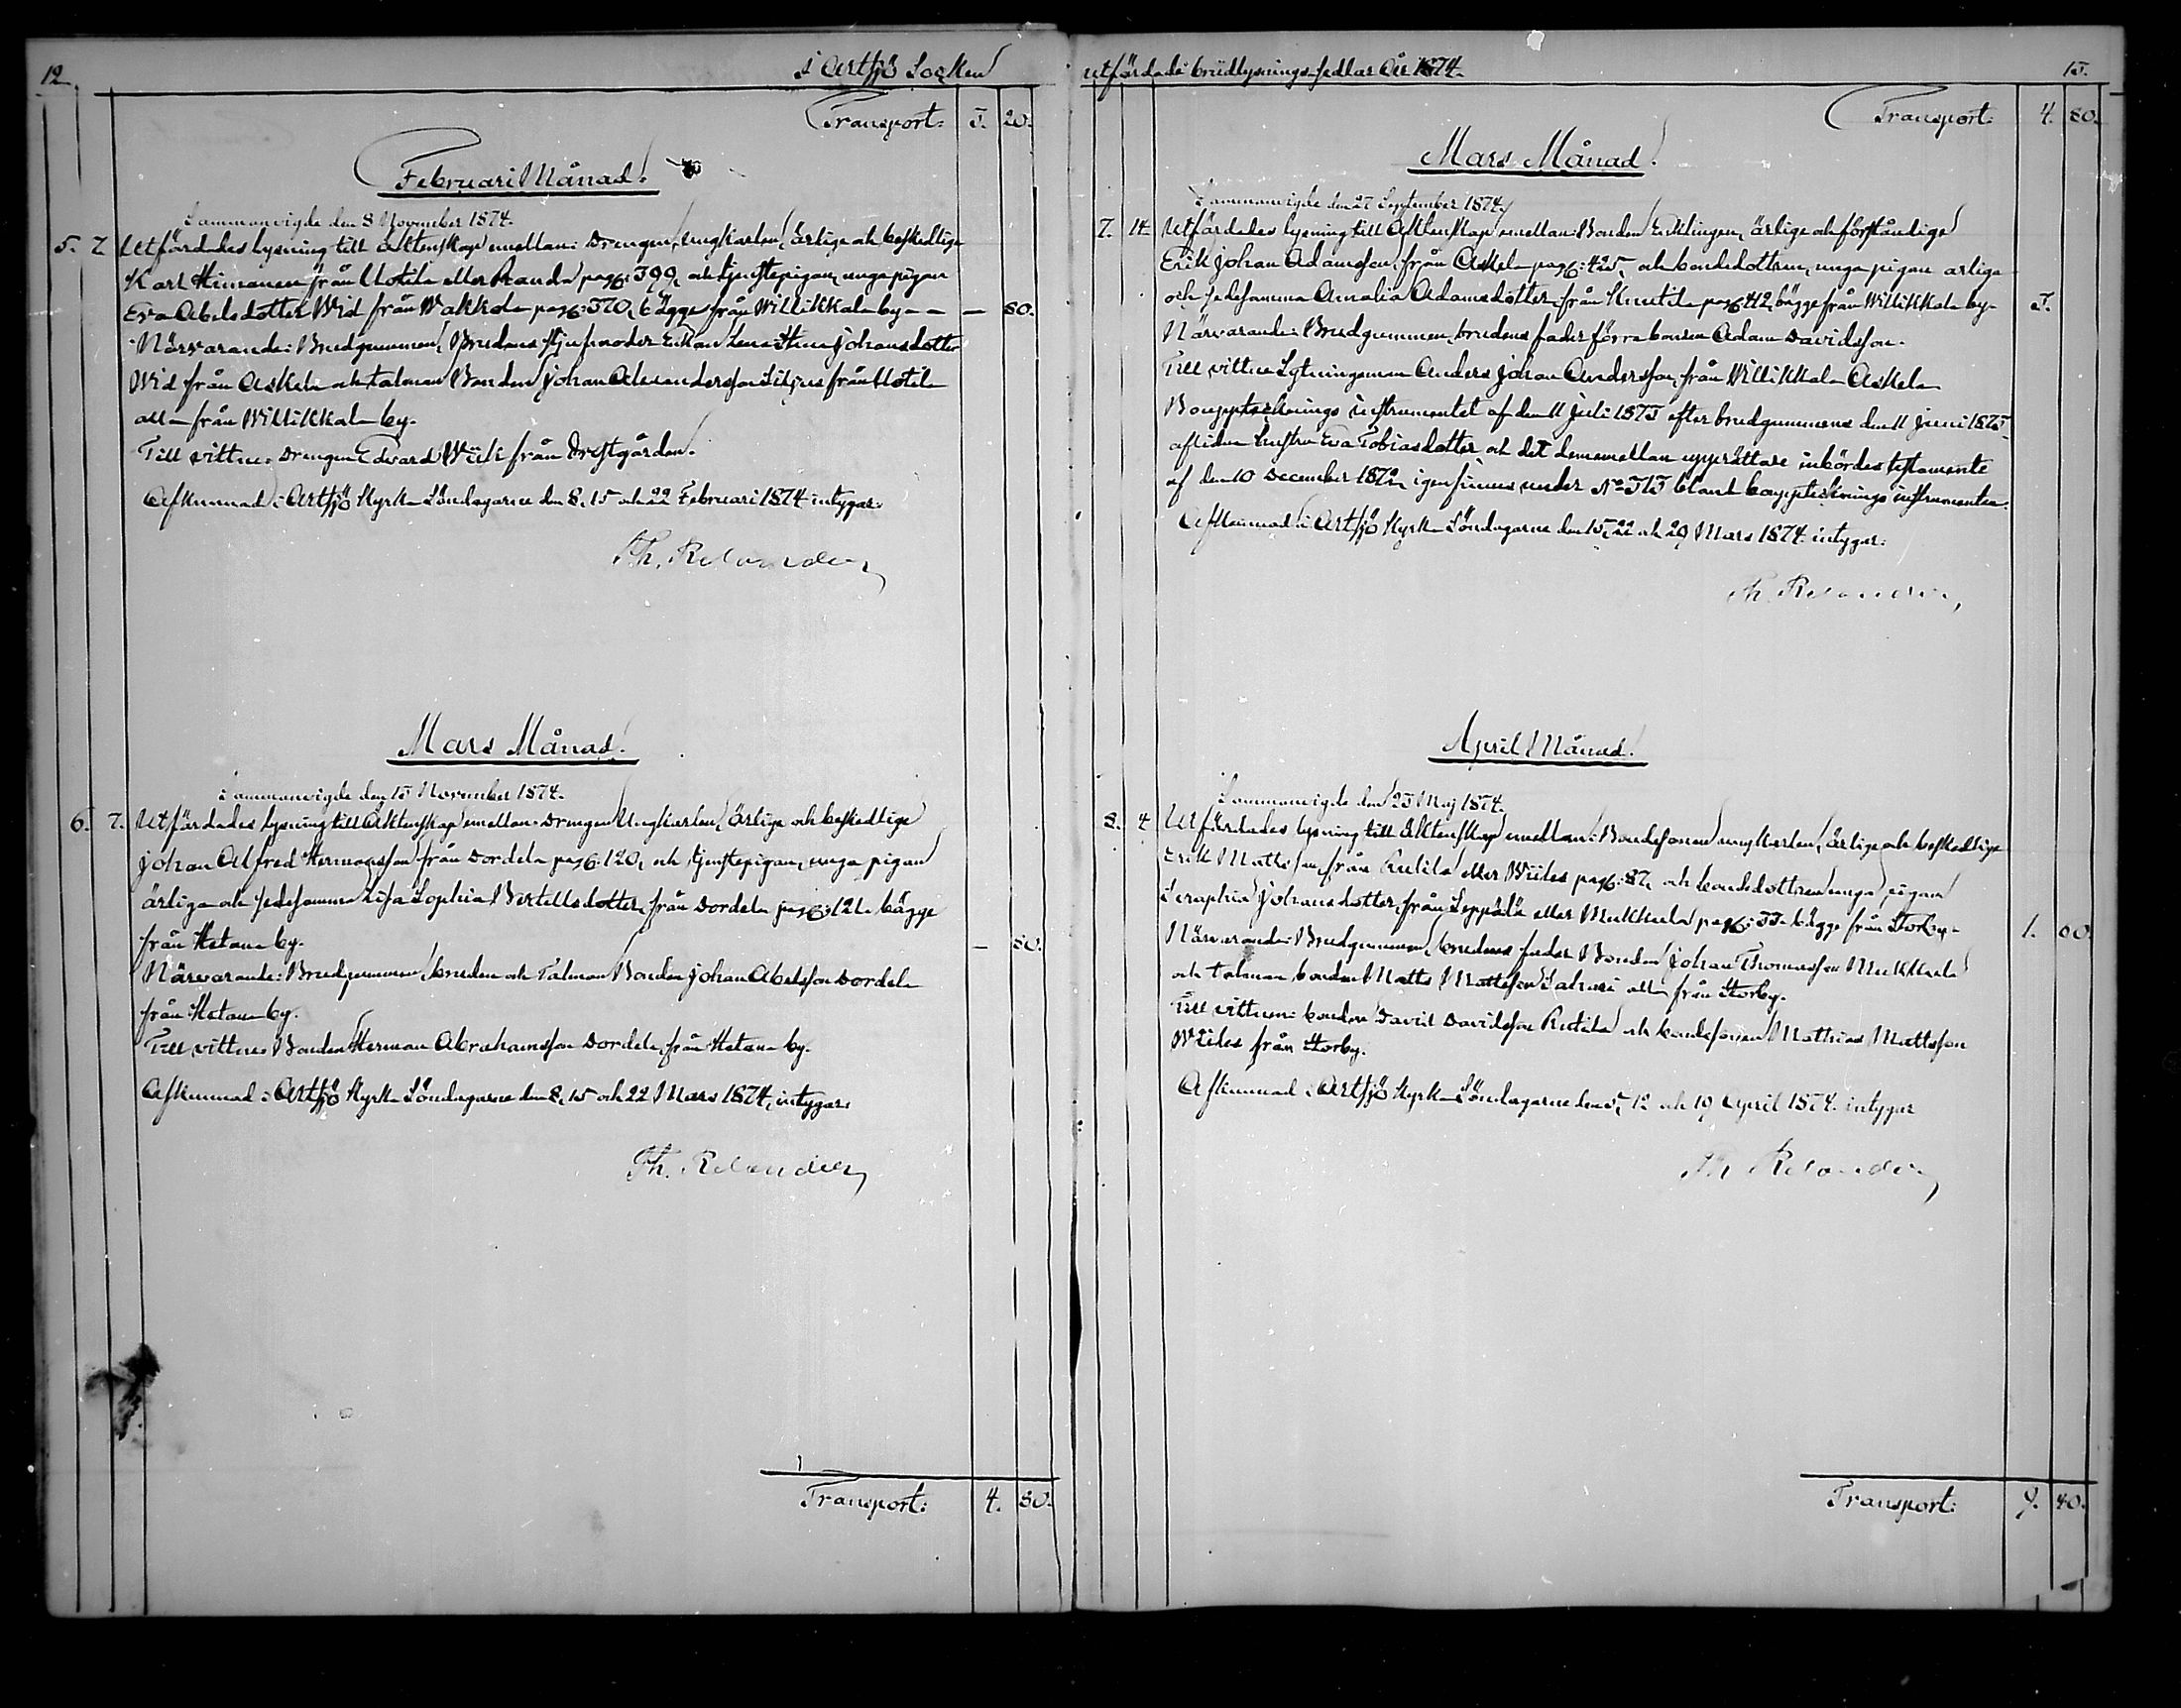 12.
i Artsjö Socken
Transport: 3. 20.
Februari Månad.
Sammanvigde den 8 November 1874.
5. 7. Utfärdades lysning till äktenskap emellan: Drengen, Ungkarlen, ärlige och beskedlige
Karl Himanen från Uotila eller Randa pag: 399, och tjenstepigan, unga pigan
Eva Abelsdotter Wid från Wakkola pag: 370, bägge från Willikkala by – – — 80.
Närvarande: Brudgummen, Brudens stjufmoder Enkan Lena Stina Johansdotter
Wid från Askela och talman Bonden Johan Alexandersson Liljus från Uotila
alla från Willikkala by.
Till vittne: Drengen Edvard Wiik från Prestgården.
Afkunnad i Artsjö Kyrka Söndagarne den 8, 15 och 22 Februari 1874 intygar:
Th. Relander
Mars Månad.
Sammanvigde den 15 November 1874.
6. 7. Utfärdades lysning till äktenskap emellan: Drengen Ungkarlen, ärlige och beskedlige
Johan Alfred Hermansson från Dordela pag: 120, och tjenstepigan, unga pigan
ärliga och sedesamma Lisa Sophia Bertillsdotter, från Dordela pag: 121. bägge
från Hatana by. — 80.
Närvarande: Brudgummen, bruden och Talman Bonden Johan Abelsson Dordela
från Hatana by.
Till vittne: Bonden Herman Abrahamsson Dordela, från Hatana by.
Afkunnad i Artsjö Kyrka Söndagarne den 8, 15 och 22 Mars 1874, intygar:
Th. Relander
Transport: 4. 80.
utfärdade brudlysnings-sedlar År 1874.
13.
Transport: 4. 80.
Mars Månad.
Sammanvigde den 27 September 1874.
7. 14. Utfärdades lysning till Äktenskap emellan: Bonden Enklingen, ärlige och förståndige
Erik Johan Adamsson, från Askela pag: 425, och bondedottren, unga pigan ärliga
och sedesamma Amalia Adamsdotter, från Knutila pag: 412, bägge från Willikkala by- 3.
Närvarande: Brudgummen, brudens fader förra bonden Adam Davidsson.
Till vittne Sytningsman Anders Johan Andersson, från Willikkala Askela
Bouppteknings instrumentet af den 11 Juli 1873 efter brudgummens den 11 Juni 1873
aflidna hustru Eva Tobiasdotter, och det dememellan upprättade inbördes testamente
af den 10 December 1872, igenfinnes under No 313 bland bouppteknings instrumenten.
Afkunnad i Artsjö Kyrka Söndagarne den 15, 22 och 29 Mars 1874. intygar:
Th. Relander
April Månad.
Sammanvigde den 23 Maj 1874.
8. 4. Utfärdades lysning till äktenskap emellan: Bondesonen ungkarlen, ärlige och beskedlige
Erik Mathsson från Rutila eller Wiides pag: 87, och bondedottren unga pigan
Seraphia Johansdotter, från Seppälä eller Mukkula pag: 33. bägge från Storby- 1. 60.
Närvarande: Brudgummen, brudens fader Bonden Johan Thomasson Mukkula
och talman bonden Matts Mattsson Sahari alla från Storby.
Till vittnen: bonden David Davidsson Rutila och bondesonen Mathias Mattsson
Wiides från Storby.
Afkunnad i Artsjö Kyrka Söndagarne den 5, 12 och 19 April 1874. intygar
Th Relander
Transport: 9. 40.